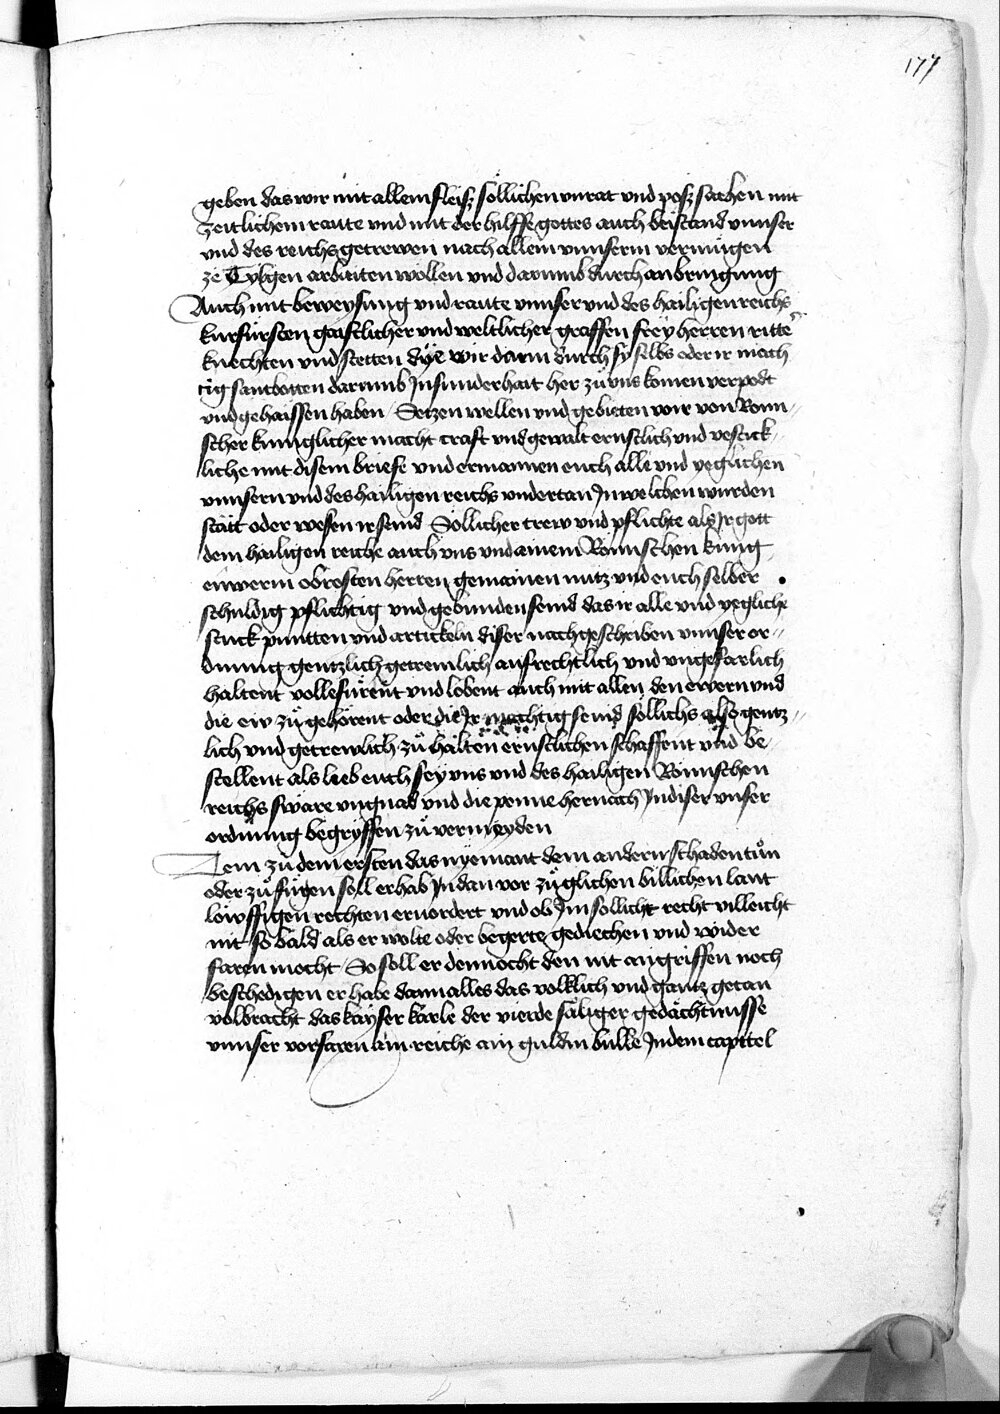 177
geben das wir mit allem fleisz söllichen vnrat vnd posz sachen mit
zeitlichem raute vnd mit der hilffe gottes auch beistand vnnser
vnd des reichs getrewen nach allem vnnserm vermugen
ze Tylgen arbaiten wollen vnd darumb durch anbringung
Auch mit beweysung vnd raute vnnser vnd des hailigen reichs
kurfursten gaistlicher vnd weltlicher graffen frey herren ritte
knechten vnd stetten dye wir darin durch sy selbs oder ir mäch
tig santbotten darumb Jnsunderhait her zů vns komen verpodt
vnd gehaissen haben / Setzen wellen vnd gebieten wir von Romi//
scher kuniglicher macht craft vnd gewalt ernstlich vnd vestick//
liche mit disem briefe vnd ermannen euch alle vnd yeglichen
vnnsern vnd des hailigen reichs vndertan Jnwelchen wurden
statt oder wesen ir seind Söllicher trew vnd pflichte als Jr gott
dem hailigen reiche auch vns vnd ainem Römischen kunig
eüwerm obresten herren gemainen nutz vnd euch selber
schuldig pflichtig vnd gebunden seind das ir alle vnd yegliche
stuck puntten vnd artickeln diser nachgeschriben vnnser or//
dnung gentzlich getrewlich aufrechtlich vnd vngefarlich
haltent vollefürent vnd lobent auch mit allen den ewern vnd
die eiv zů gehörent oder die Jr mechtig seind söllichs also gentz//
lich vnd getrewlich zů halten ernstlichen schaffent vnd be//
stellent als lieb euch sey vns vnd des hailigen Römischen
reichs sware vngnad vnd die penne hernach Jndiser vnser
ordnung begryffen zů vermeyden
Jtem zů dem ersten das nyemant dem andern schaden tůn
oder zů fügen soll er hab Jn dan vor zů glichen billichen lant
löwffigen rechten eruordert vnd ob Jm sollicht recht villeicht
nit so bald als er wolte oder begerte gediechen vnd wider
faren mocht / So soll er dennocht den nit angriffen noch
beschedigen er habe dann alles das volklich vnd gantz getan
volbracht das kayser karle der vierde säliger gedächtnusse
vnnser vorfaren am reiche ain guldin bulle Jndem capittel